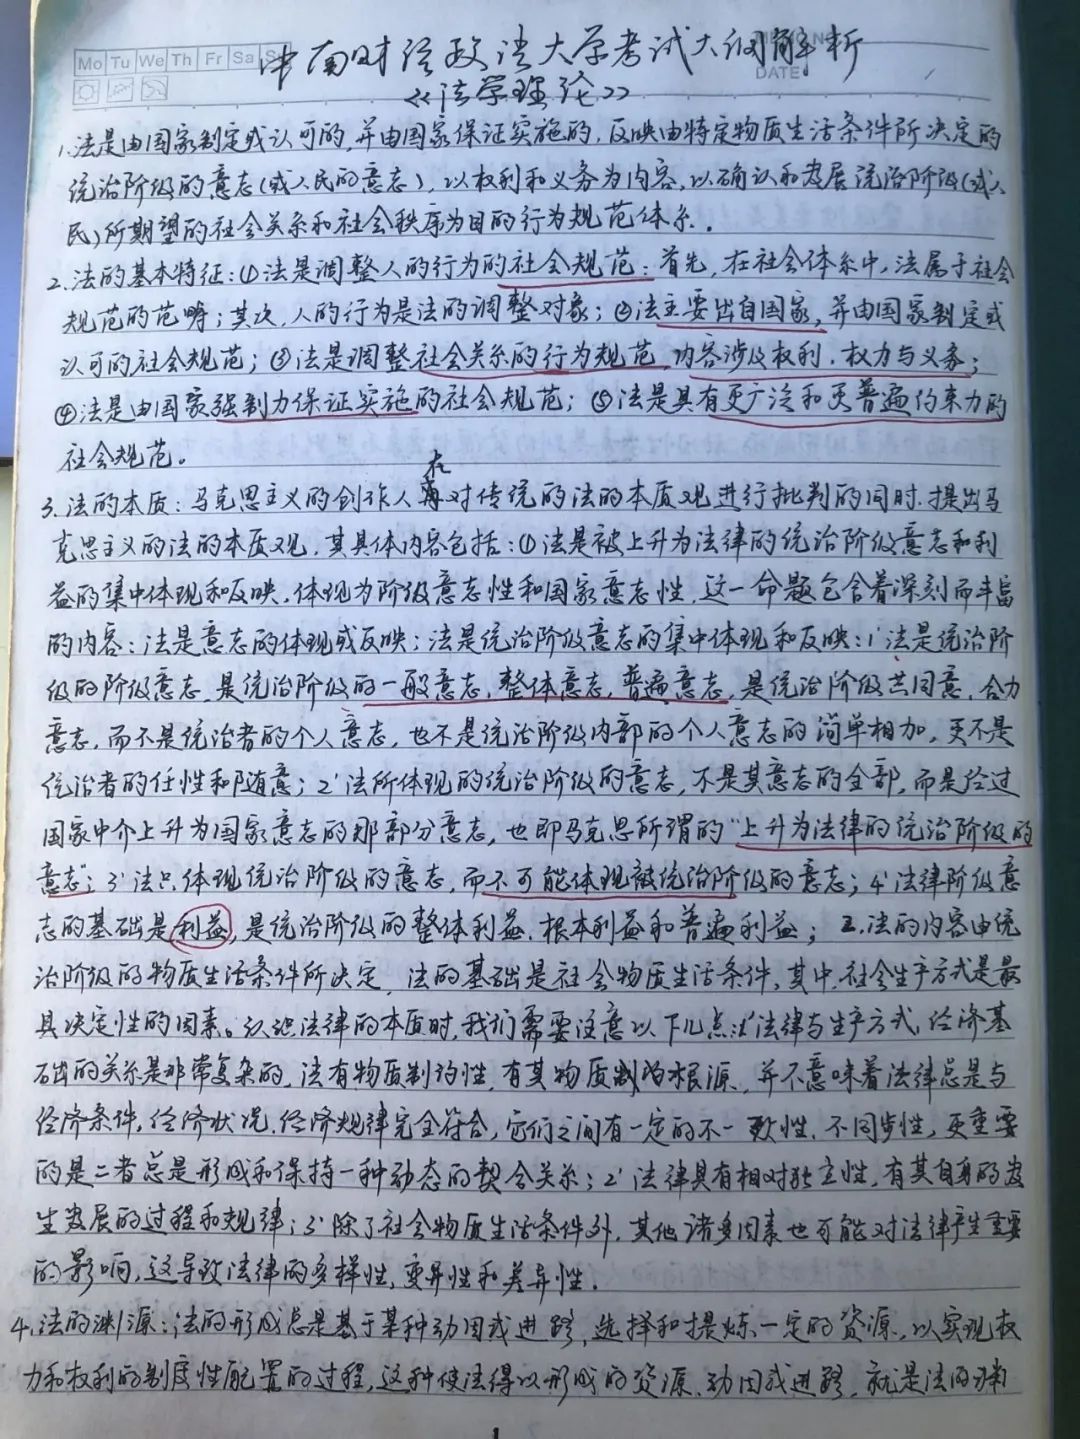 Mo Tu We Th Fr Sa
中南财经政法大学考试大纲解析
DATE
《法学理论》
1.法是由国家制定或认可的,并由国家保证实施的,反映由特定物质生活条件所决定的
统治阶级的意志(或人民的意志),以权利和义务为内容,以确认和发展统治阶级(或人
民)所期望的社会关系和社会秩序为目的行为规范体系。
2.法的基本特征:①法是调整人的行为的社会规范:首先,在社会体系中,法属于社会
规范的范畴;其次,人的行为是法的调整对象;②法主要出自国家,并由国家制定或
认可的社会规范;③法是调整社会关系的行为规范,内容涉及权利、权力与义务;
④法是由国家强制力保证实施的社会规范;⑤法是具有更广泛和更普遍约束力的
社会规范。
3.法的本质:马克思主义的创作人在对传统的法的本质观进行批判的同时,提出马
克思主义的法的本质观,其具体内容包括:①法是被上升为法律的统治阶级意志和利
益的集中体现和反映,体现为阶级意志性和国家意志性,这一命题包含着深刻而丰富
的内容:法是意志的体现或反映;法是统治阶级意志的集中体现和反映:1'法是统治阶
级的阶级意志,是统治阶级的一般意志,整体意志,普遍意志,是统治阶级共同意,合力
意志,而不是统治者的个人意志,也不是统治阶级内部的个人意志的简单相加,更不是
统治者的任性和随意;2'法所体现的统治阶级的意志,不是其意志的全部,而是经过
国家中介上升为国家意志的那部分意志,也即马克思所谓的"上升为法律的统治阶级的
意志";3'法只体现统治阶级的意志,而不可能体现被统治阶级的意志;4'法律阶级意
志的基础是利益,是统治阶级的整体利益、根本利益和普遍利益;2.法的内容由统
治阶级的物质生活条件所决定,法的基础是社会物质生活条件,其中,社会生产方式是最
具决定性的因素。认识法律的本质时,我们需要注意以下几点:1'法律与生产方式、经济基
础的关系是非常复杂的,法有物质制约性,有其物质制约根源,并不意味着法律总是与
经济条件,经济状况、经济规律完全符合,它们之间有一定的不一致性、不同步性,更重要
的是二者总是形成和保持一种动态的契合关系;2'法律具有相对独立性,有其自身的发
生发展的过程和规律;3'除了社会物质生活条件外,其他诸多因素也可能对法律产生重要
的影响,这导致法律的多样性,变异性和差异性。
4.法的渊源:法的形成总是基于某种动因或进路,选择和提炼一定的资源,以实现权
力和权利的制度性配置的过程,这种使法得以形成的资源、动因或进路,就是法的渊
1